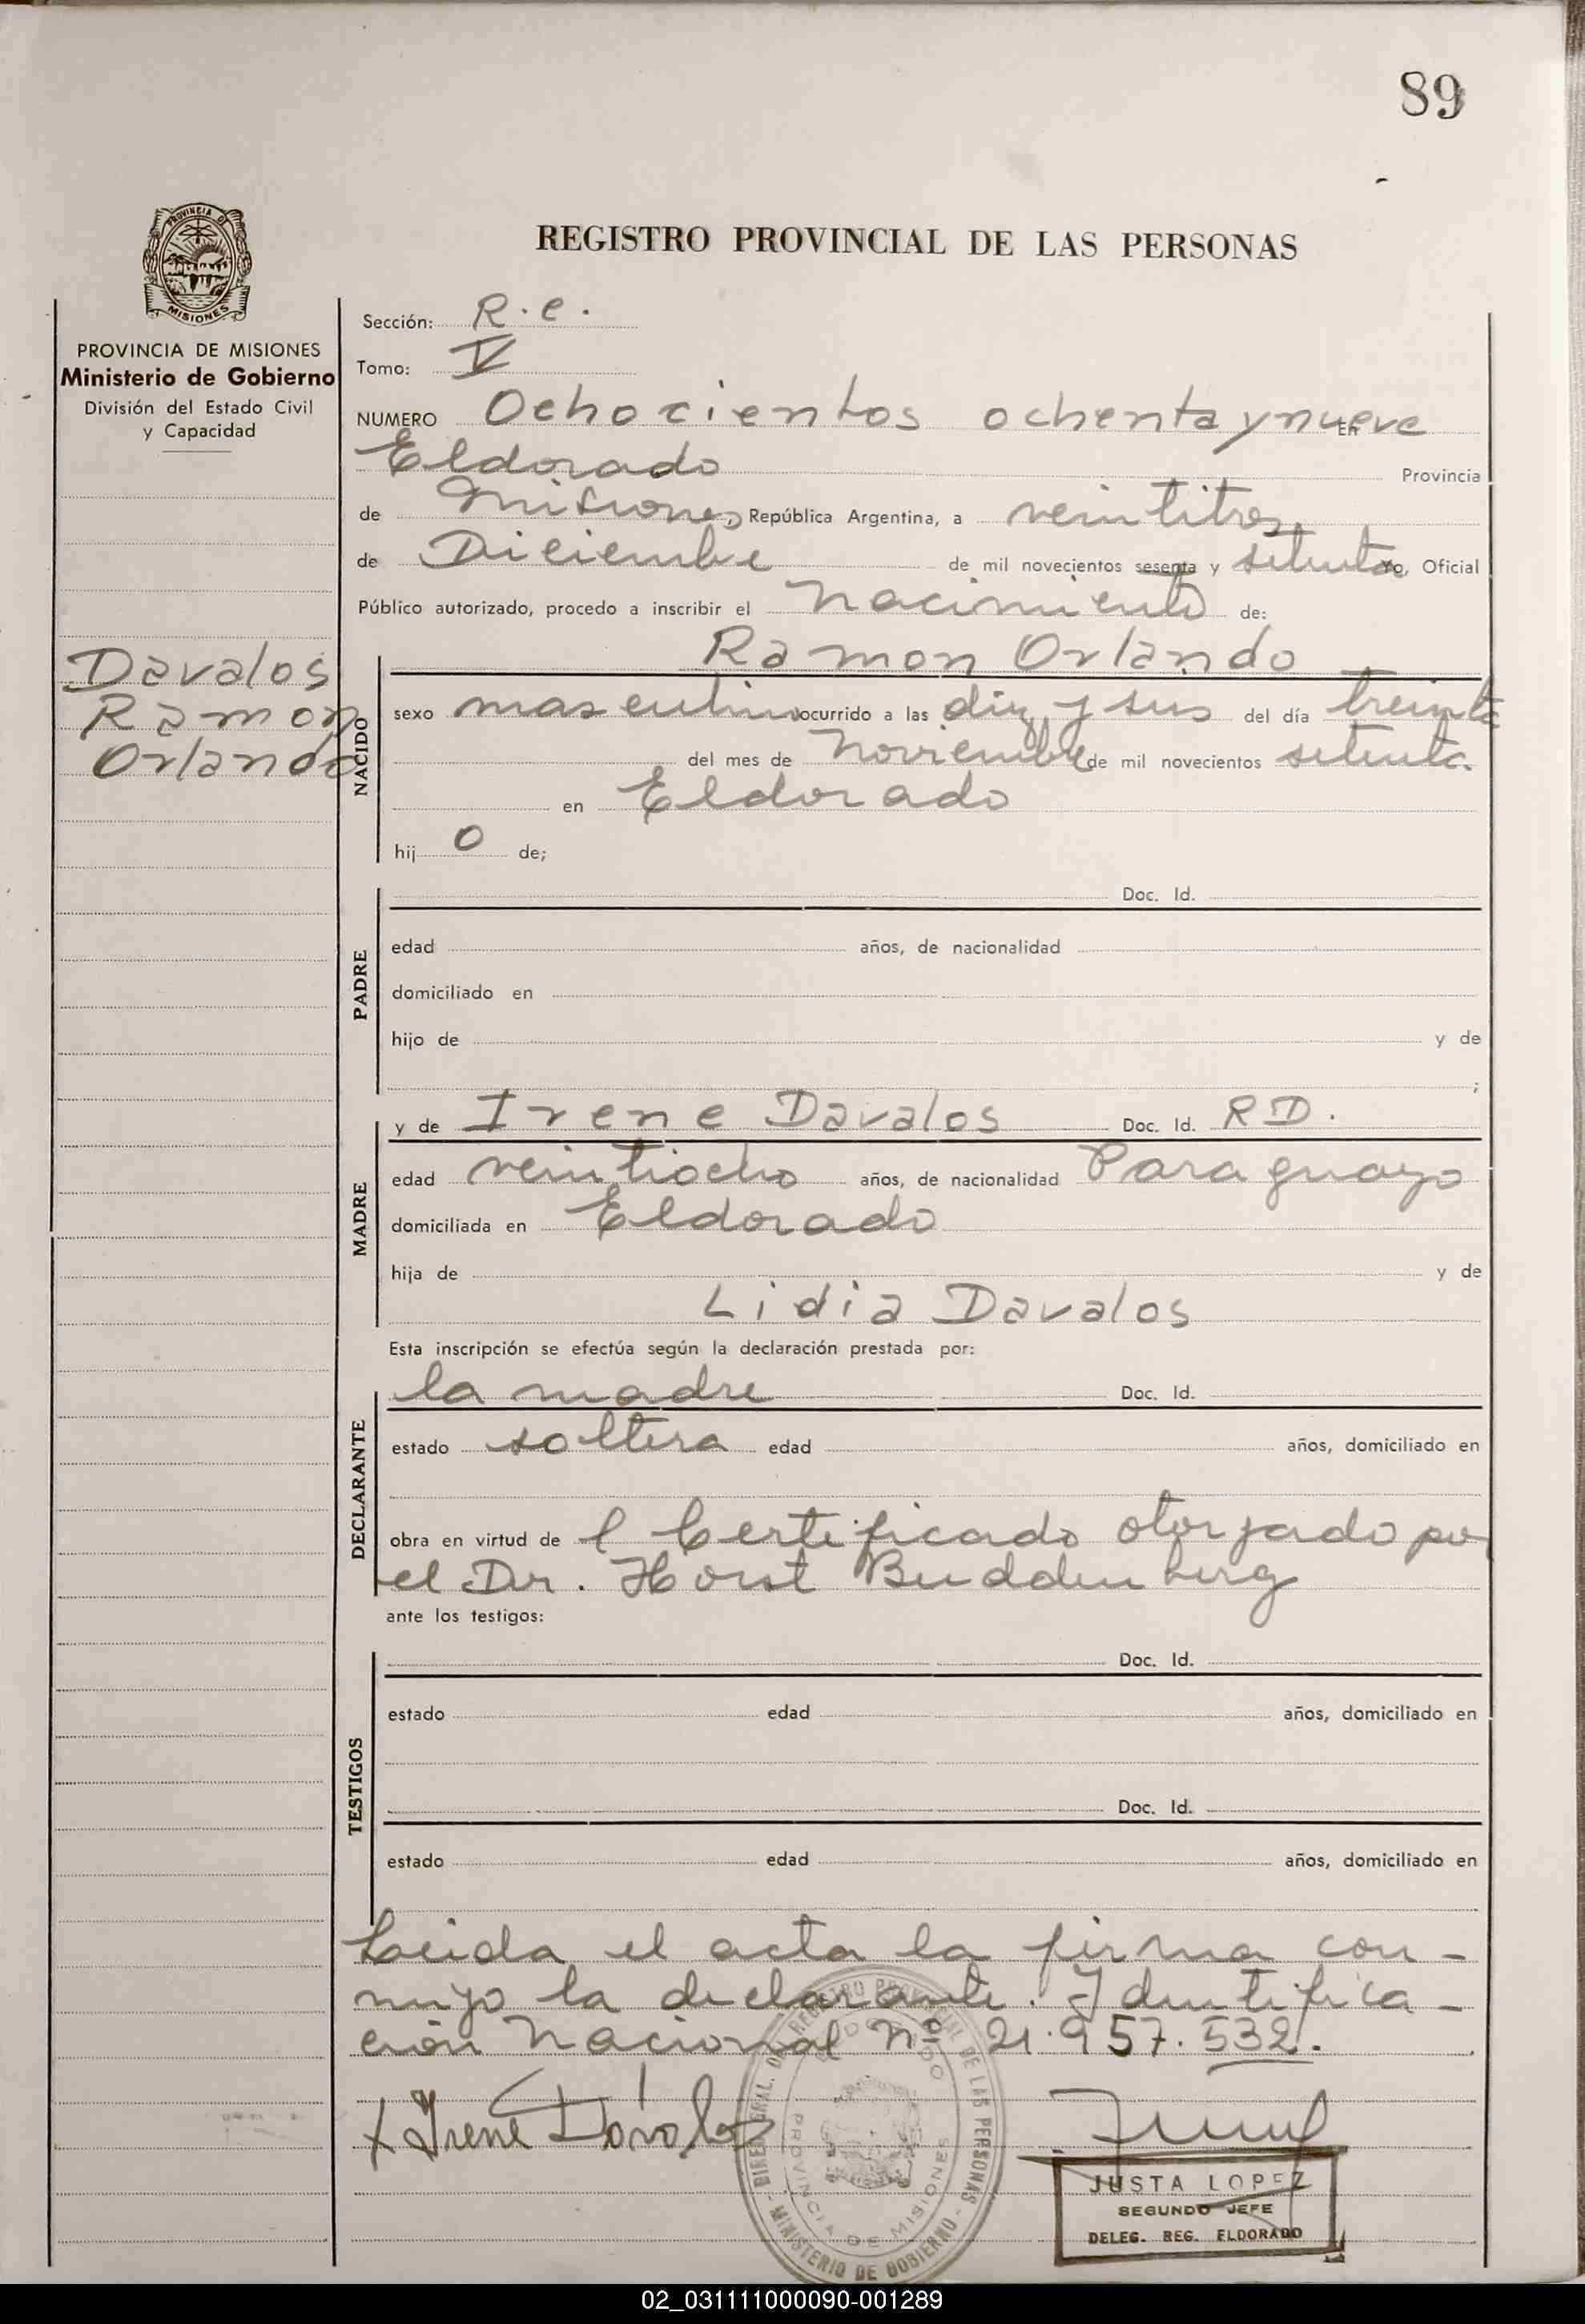 89
PROVINCIA DE
MISIONES
REGISTRO PROVINCIAL DE LAS PERSONAS
PROVINCIA DE MISIONES
Ministerio de Gobierno
División del Estado Civil
y Capacidad
Davalos
Ramon
Orlando
Sección: R.C.
Tomo: V
NUMERO Ochocientos ochenta y nueve En
Eldorado Provincia
de Misiones, República Argentina, a veintitres
de Diciembre de mil novecientos sesenta y setenta Yo, Oficial
Público autorizado, procedo a inscribir el nacimiento de:
NACIDO
Ramon Orlando
sexo masculino ocurrido a las diez y seis del día treinta
del mes de Noviembre de mil novecientos setenta.
en Eldorado
hij o de;
PADRE
Doc. Id.
edad años, de nacionalidad
domiciliado en
hijo de y de
;
MADRE
y de Irene Davalos Doc. Id. RD.
edad veintiocho años, de nacionalidad Paraguayo
domiciliada en Eldorado
hija de y de
Lidia Davalos
Esta inscripción se efectúa según la declaración prestada por:
DECLARANTE
la madre Doc. Id.
estado soltera edad años, domiciliado en
obra en virtud de l Certificado otorgado por
el Dr. Horst Buddenberg
ante los testigos:
TESTIGOS
Doc. Id.
estado edad años, domiciliado en
Doc. Id.
estado edad años, domiciliado en
Leida el acta la firma con-
migo la declarante. Identifica-
ción Nacional Nº 21.957.532.
x Irene Dávalos
DIREC. GRAL. DEL REGISTRO PROVINCIAL DE LAS PERSONAS
- MINISTERIO DE GOBIERNO -
ELDORADO
PROVINCIA DE MISIONES
JUSTA LOPEZ
SEGUNDO JEFE
DELEG. REG. ELDORADO
02_031111000090-001289